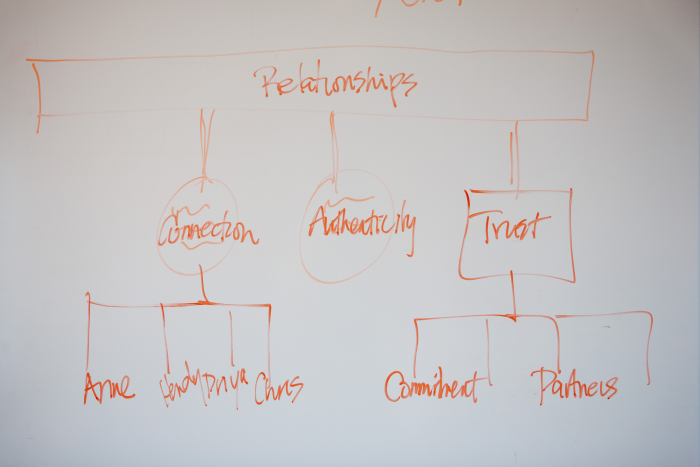 Relationships
Connection Authenticity Trust
Anne Priya Chris Commitment Partners